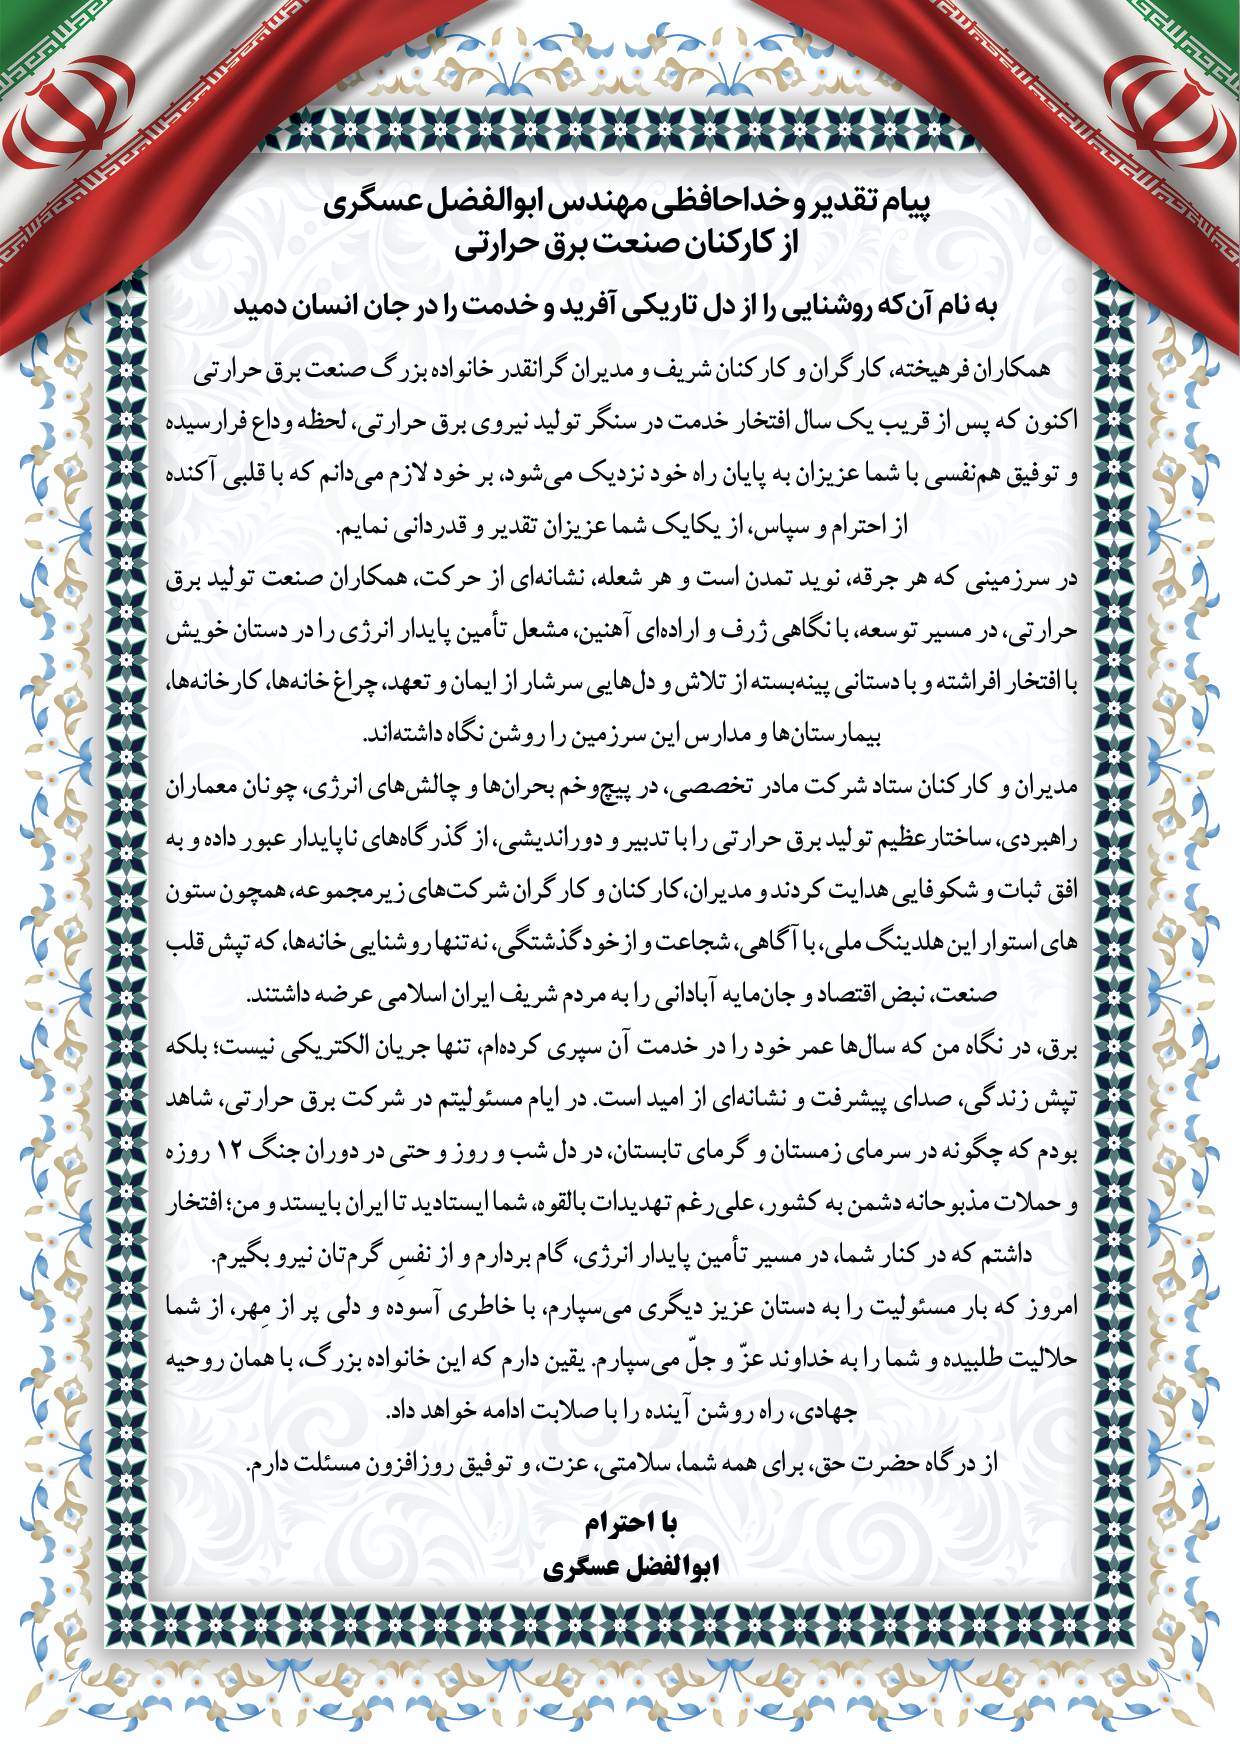 پیام تقدیر و خداحافظی مهندس ابوالفضل عسگری
از کارکنان صنعت برق حرارتی
به نام آن‌که روشنایی را از دل تاریکی آفرید و خدمت را در جان انسان دمید
همکاران فرهیخته، کارگران و کارکنان شریف و مدیران گرانقدر خانواده بزرگ صنعت برق حرارتی
اکنون که پس از قریب یک سال افتخار خدمت در سنگر تولید نیروی برق حرارتی، لحظه وداع فرارسیده
و توفیق هم‌نفسی با شما عزیزان به پایان راه خود نزدیک می‌شود، بر خود لازم می‌دانم که با قلبی آکنده
از احترام و سپاس، از یکایک شما عزیزان تقدیر و قدردانی نمایم.
در سرزمینی که هر جرقه، نوید تمدن است و هر شعله، نشانه‌ای از حرکت، همکاران صنعت تولید برق
حرارتی، در مسیر توسعه، با نگاهی ژرف و اراده‌ای آهنین، مشعل تأمین پایدار انرژی را در دستان خویش
با افتخار افراشته و با دستانی پینه‌بسته از تلاش و دل‌هایی سرشار از ایمان و تعهد، چراغ خانه‌ها، کارخانه‌ها،
بیمارستان‌ها و مدارس این سرزمین را روشن نگاه داشته‌اند.
مدیران و کارکنان ستاد شرکت مادر تخصصی، در پیچ‌وخم بحران‌ها و چالش‌های انرژی، چونان معماران
راهبردی، ساختارعظیم تولید برق حرارتی را با تدبیر و دوراندیشی، از گذرگاه‌های ناپایدار عبور داده و به
افق ثبات و شکوفایی هدایت کردند و مدیران،کارکنان و کارگران شرکت‌های زیرمجموعه، همچون ستون
های استوار این هلدینگ ملی، با آگاهی، شجاعت و ازخودگذشتگی، نه‌تنها روشنایی خانه‌ها، که تپش قلب
صنعت، نبض اقتصاد و جان‌مایه آبادانی را به مردم شریف ایران اسلامی عرضه داشتند.
برق، در نگاه من که سال‌ها عمر خود را در خدمت آن سپری کرده‌ام، تنها جریان الکتریکی نیست؛ بلکه
تپش زندگی، صدای پیشرفت و نشانه‌ای از امید است. در ایام مسئولیتم در شرکت برق حرارتی، شاهد
بودم که چگونه در سرمای زمستان و گرمای تابستان، در دل شب و روز و حتی در دوران جنگ ۱۲ روزه
و حملات مذبوحانه دشمن به کشور، علی‌رغم تهدیدات بالقوه، شما ایستادید تا ایران بایستد و من؛ افتخار
داشتم که در کنار شما، در مسیر تأمین پایدار انرژی، گام بردارم و از نفسِ گرم‌تان نیرو بگیرم.
امروز که بار مسئولیت را به دستان عزیز دیگری می‌سپارم، با خاطری آسوده و دلی پر از مِهر، از شما
حلالیت طلبیده و شما را به خداوند عزّ و جلّ می‌سپارم. یقین دارم که این خانواده بزرگ، با همان روحیه
جهادی، راه روشن آینده را با صلابت ادامه خواهد داد.
از درگاه حضرت حق، برای همه شما، سلامتی، عزت، و توفیق روزافزون مسئلت دارم.
با احترام
ابوالفضل عسگری